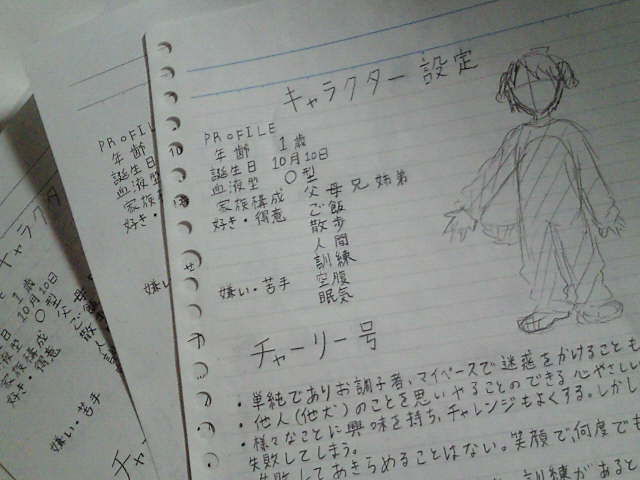 キャラクター設定
PROFILE
年齢 1歳
誕生日 10月10日
血液型 〇型
家族構成 父母兄姉弟
好き・得意 ご飯
散歩
人間
訓練
嫌い・苦手 空腹
眠気
チャーリー号
・単純でありお調子者、マイペースで迷惑をかけることも
・他人(他犬)のことを思いやることのできる心やさしい
・様々なことに興味を持ち、チャレンジもよくする。しかし
失敗してしまう。
失敗してあきらめることはない。笑顔で、何度でも
訓練があると
PROFIL
年齢
誕生日 10
血液型
家族
好き・得
嫌い
キャラクタ
1歳
10月10日
〇型
父母
ご飯
構成
得意
嫌い・苦手
チャ